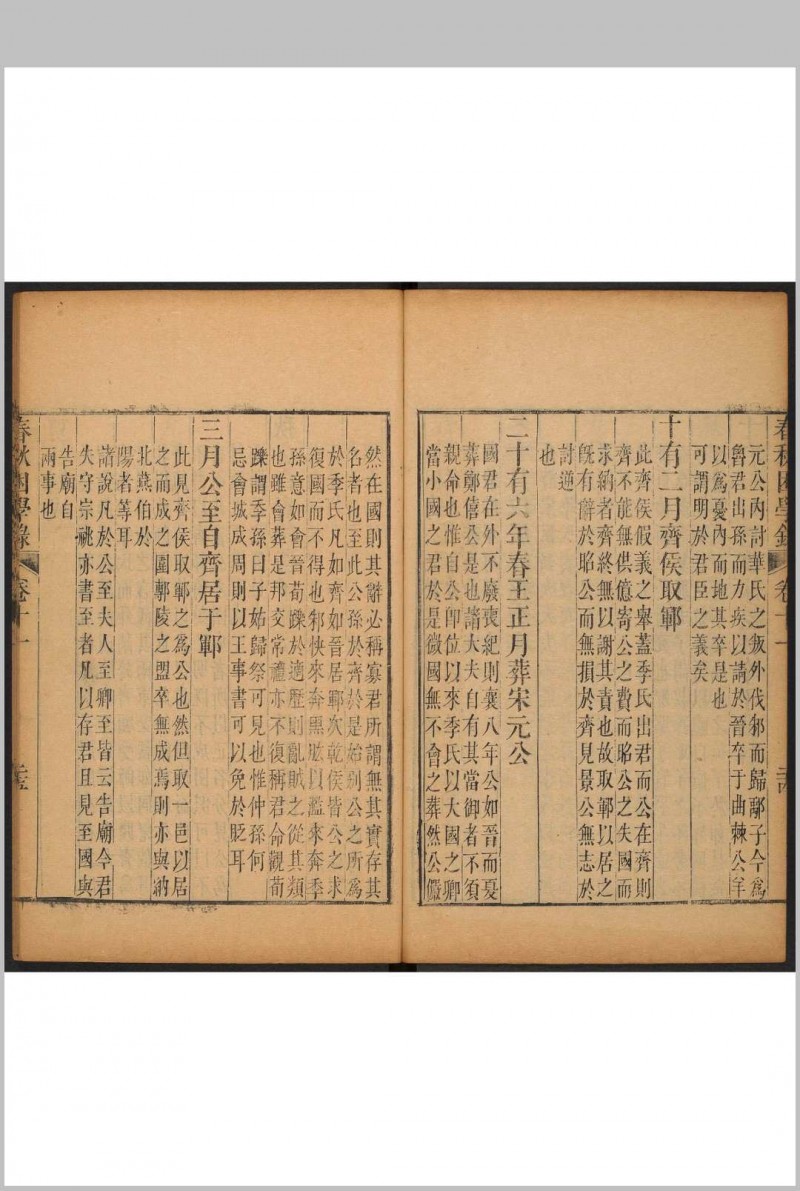 春秋困學錄 卷十一
元公內討華氏之叛外伐邾而歸鄅子今爲
魯君出孫而力疾以請於晉卒于曲棘公羊
以爲憂內而地其卒是也
可謂明於君臣之義矣
十有二月齊侯取鄆
此齊侯假義之舉蓋季氏出君而公在齊則
齊不能無供億寄公之費而昭公之失國而
求納者齊終無以謝其責也故取鄆以居之
旣有辭於昭公而無損於齊見景公無志於
討逆
也
二十有六年春王正月葬宋元公
國君在外不廢喪紀則襄八年公如晉而憂
葬鄭僖公是也諸大夫自有其當御者不須
親命也惟自公卽位以來季氏以大國之卿
當小國之君於是微國無不會之葬然公儼
然在國則其辭必稱寡君所謂無其實存其
名者也至此公孫於齊於是始別公之所爲
於季氏凡如齊如晉居鄆次乾侯皆公之求
復國而不得也邾快來奔黑肱以濫來奔季
孫意如會晉荀躒於適歷則亂賊之從其類
也雖會葬是邦交常禮亦不復稱君命觀荀
躒謂季孫曰子姑歸祭可見也惟仲孫何
忌會城成周則以王事書可以免於貶耳
三月公至自齊居于鄆
此見齊侯取鄆之爲公也然但取一邑以居
之而成之圍鄟陵之盟卒無成焉則亦與納
北燕伯於
陽者等耳
諸說凡於公至夫人至卿至皆云告廟今君
失守宗祧亦書至者凡以存君且見至國與
告廟自
兩事也
春秋困學錄 卷十一